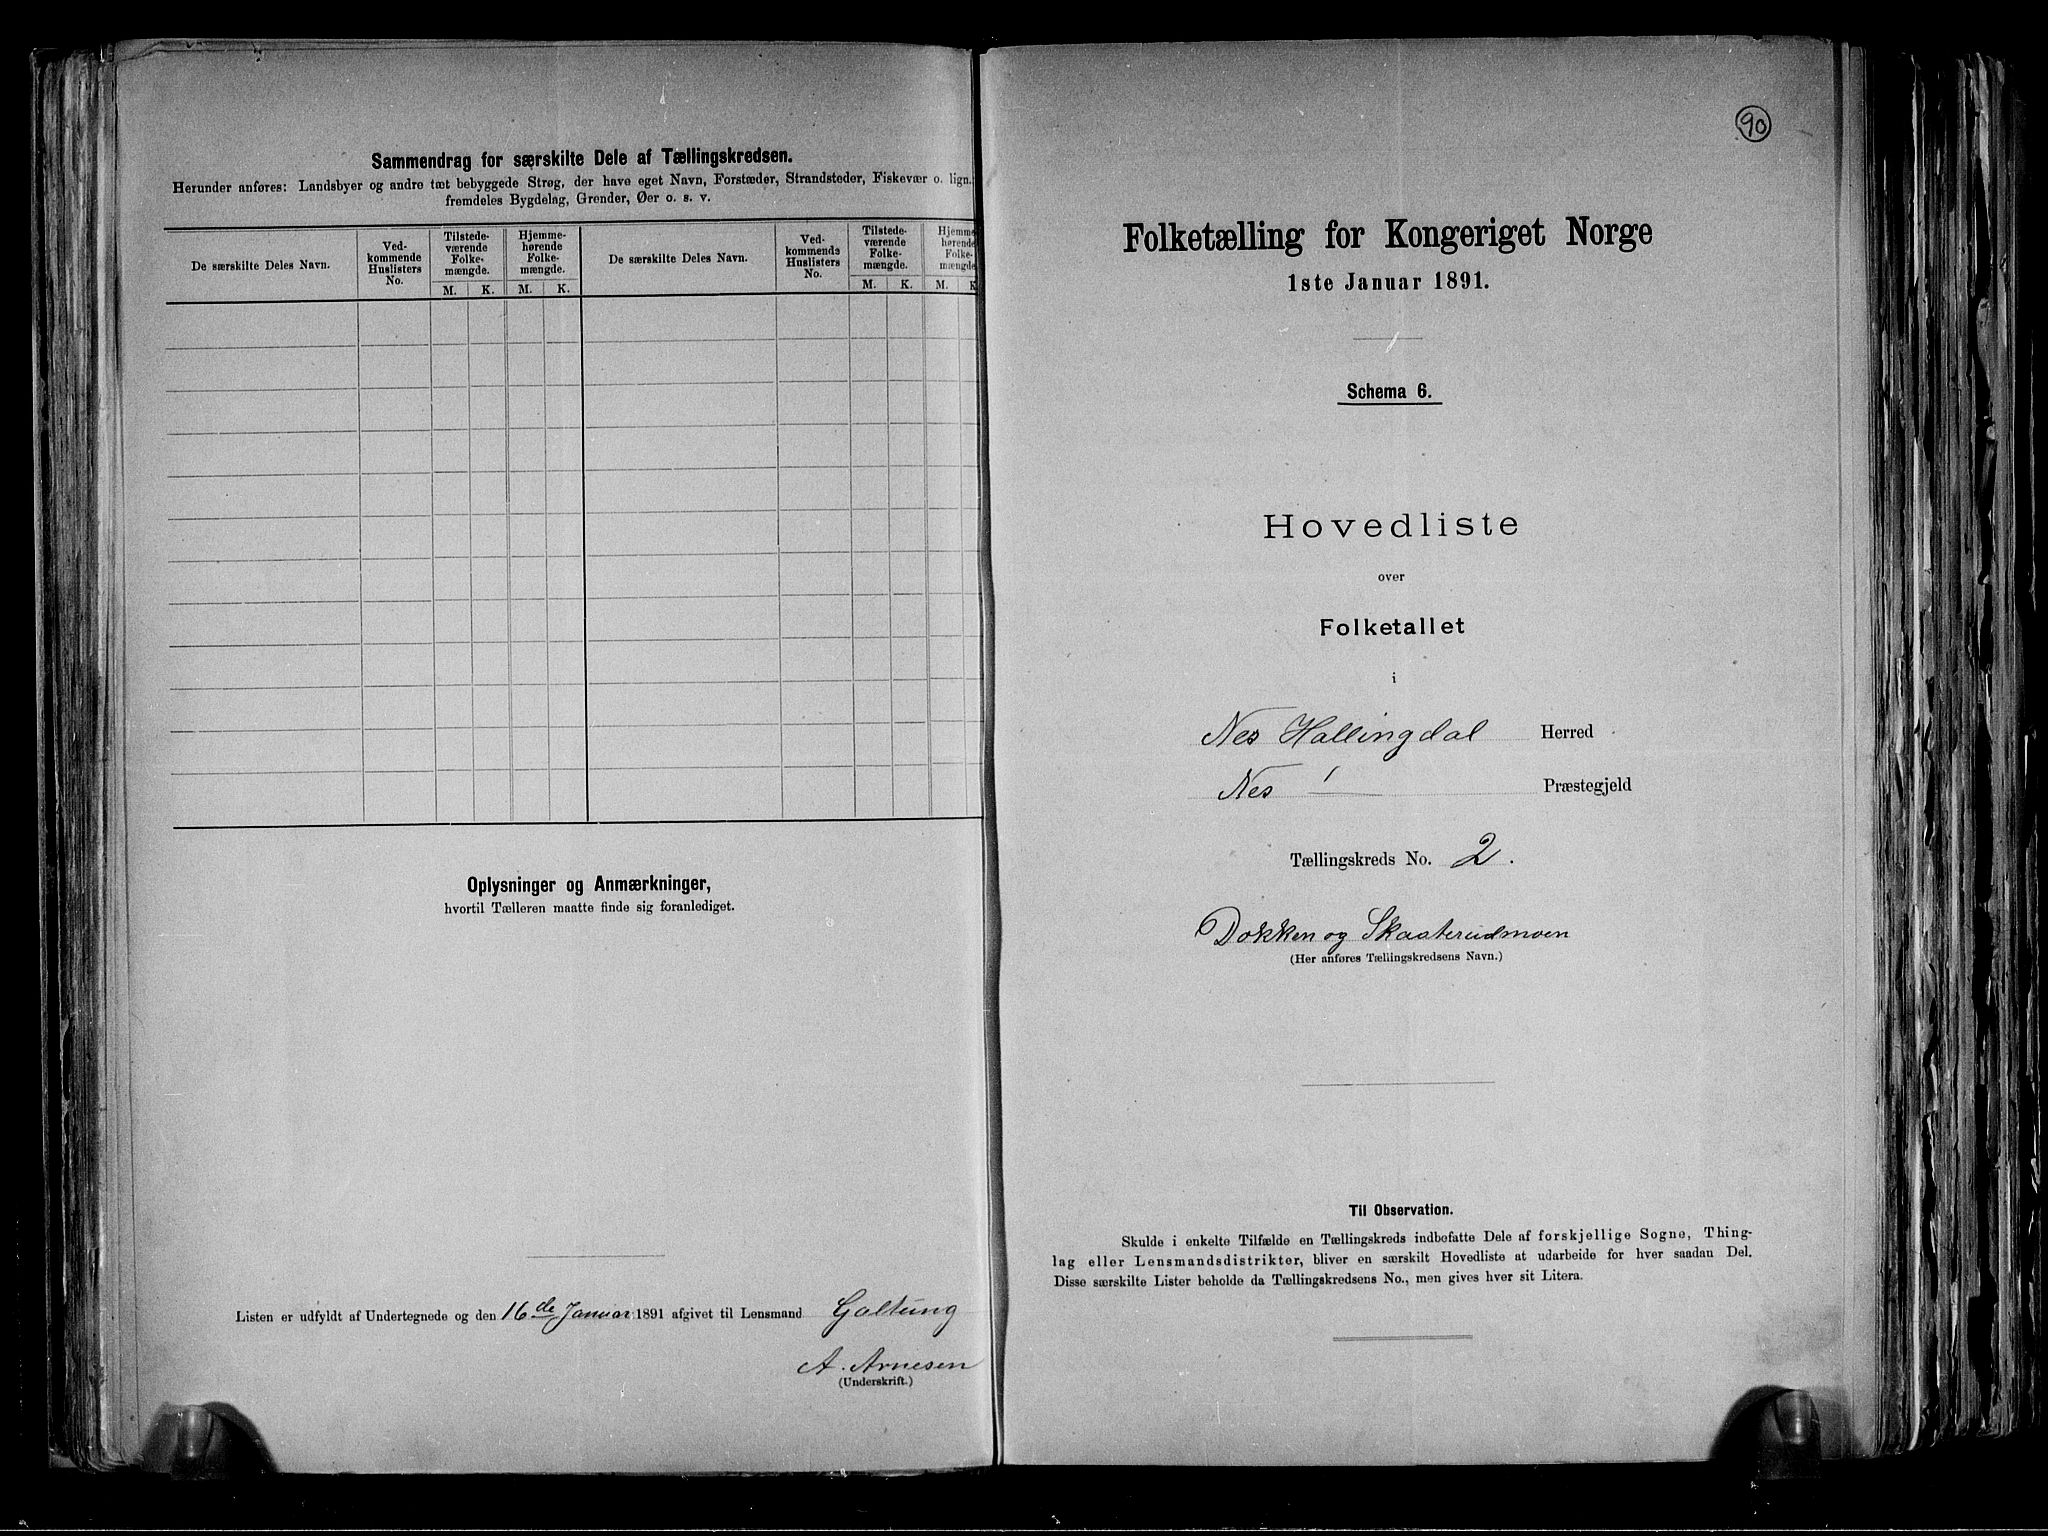 Sammendrag for særskilte Dele af Tællingskredsen.
Herunder anføres: Landsbyer og andre tæt bebyggede Strøg, der have eget Navn, Forstæder, Strandsteder, Fiskevær o. lign.
fremdeles Bygdelag, Grender, Øer o. s. v.
De særskilte Deles Navn.
Ved-
kommende
Huslisters
No.
Tilstede-
værende
Folke-
mængde.
M. K.
Hjemme-
hørende
Folke-
mængde.
M. K.
De særskilte Deles Navn.
Ved-
kommende
Huslisters
No.
Tilstede-
værende
Folke-
mængde.
M. K.
Hjemme-
hørende
Folke-
mængde
M. K
Oplysninger og Anmærkninger,
hvortil Tælleren maatte finde sig foranlediget.
Listen er udfyldt af Undertegnede og den 16de Januar 1891 afgivet til Lensmand Galtung
A. Arnesen
(Underskrift.)
90
Folketælling for Kongeriget Norge
1ste Januar 1891.
Schema 6.
Hovedliste
over
Folketallet
i
Nes Hallingdal Herred
Nes Præstegjeld
Tællingskreds No. 2.
Dokken og Skaaterudmoen
(Her anføres Tællingskredsens Navn.)
Til Observation.
Skulde i enkelte Tilfælde en Tællingskreds indbefatte Dele af forskjellige Sogne, Thing-
lag eller Lensmandsdistrikter, bliver en særskilt Hovedliste at udarbeide for hver saadan Del.
Disse særskilte Lister beholde da Tællingskredsens No., men gives hver sit Litera.